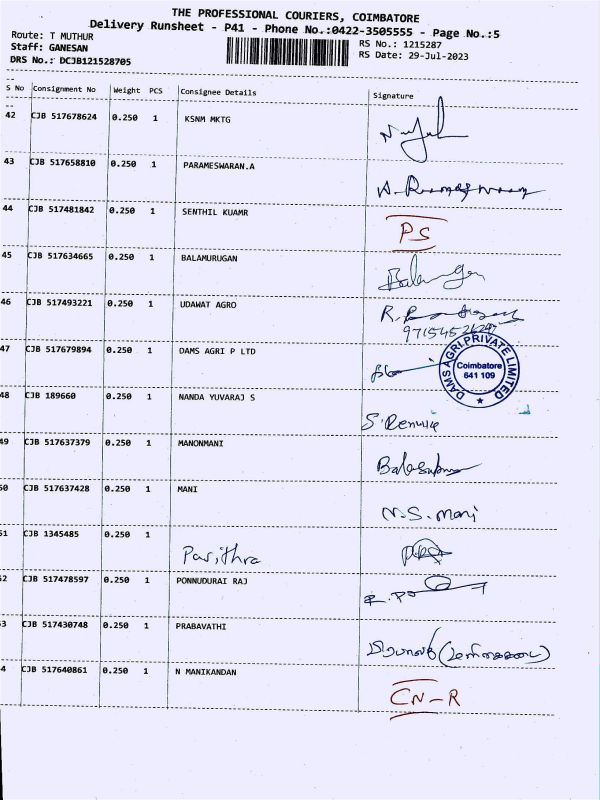 THE PROFESSIONAL COURIERS, COIMBATORE
Delivery Runsheet - P41 - Phone No.:0422-3505555 - Page No.:5
Route: T MUTHUR RS No.: 1215287
Staff: GANESAN RS Date: 29-Jul-2023
DRS No.: DCJB121528705
S No Consignment No Weight PCS Consignee Details Signature
42 CJB 517678624 0.250 1 KSNM MKTG
43 CJB 517658810 0.250 1 PARAMESWARAN.A
44 CJB 517481842 0.250 1 SENTHIL KUAMR PS
45 CJB 517634665 0.250 1 BALAMURUGAN
46 CJB 517493221 0.250 1 UDAWAT AGRO
47 CJB 517679894 0.250 1 DAMS AGRI P LTD
DAMS AGRI PRIVATE LIMITED
Coimbatore
641 109
48 CJB 189660 0.250 1 NANDA YUVARAJ S
49 CJB 517637379 0.250 1 MANONMANI
50 CJB 517637428 0.250 1 MANI M.S. Mani
51 CJB 1345485 0.250 1 Pavithra
52 CJB 517478597 0.250 1 PONNUDURAI RAJ
53 CJB 517430748 0.250 1 PRABAVATHI
4 CJB 517640861 0.250 1 N MANIKANDAN CN-R